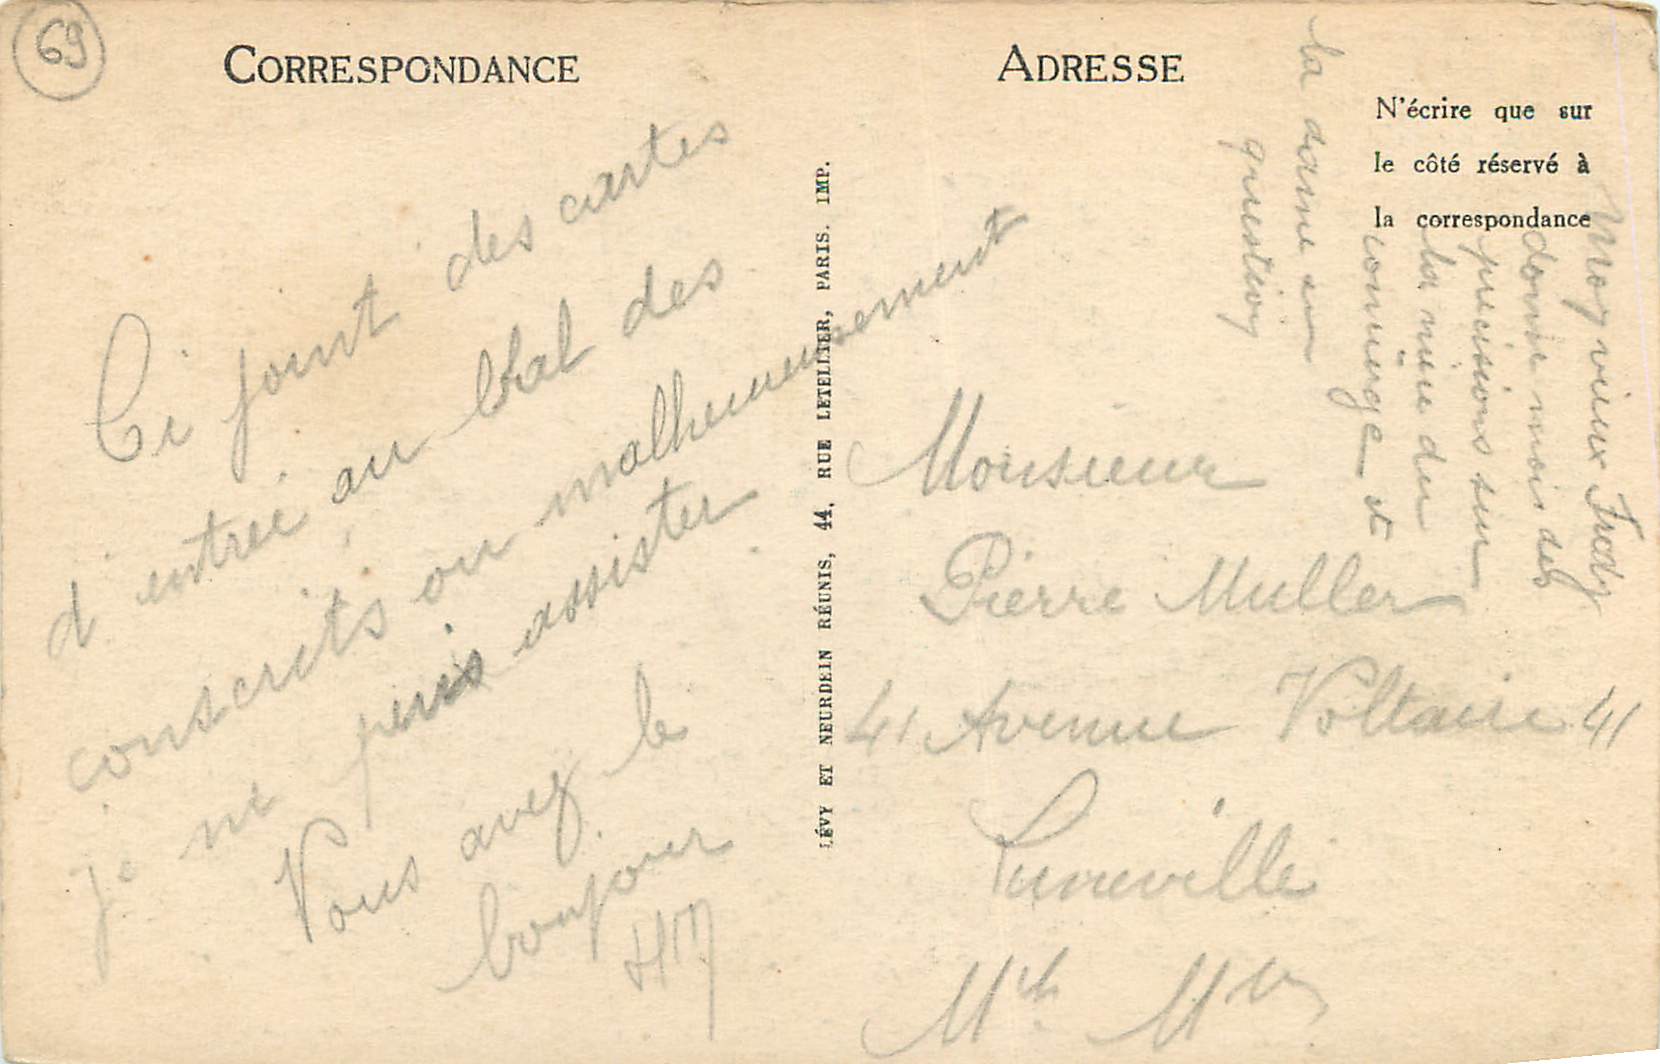 69
CORRESPONDANCE
Ci joint des cartes
d'entrée au bal des
conscrits ou malheureusement
je ne puis assister
Vous avez le
bonjour
HM
LÉVY ET NEURDEIN RÉUNIS, 44, RUE LETELLIER, PARIS. IMP.
ADRESSE
N'écrire que sur
le côté réservé à
la correspondance
Monsieur
Pierre Muller
41 Avenue Voltaire 41
Luneville
Mthe Mlle
Mon vieux Fredy
donne mois des
precisions sur
la mère du
concierge et
la dame en
question